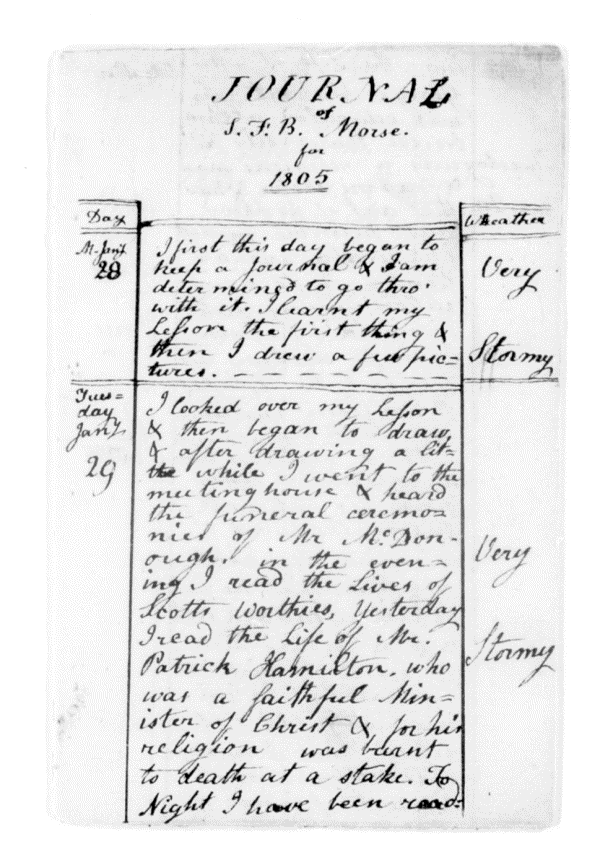 JOURNAL
of
S. F. B. Morse.
for
1805
Day
Wheather
M. Jany
28
I first this day began to
keep a Journal & I am
determined to go thro'
with it. I learnt my
Lesson the first thing &
then I drew a few pic=
tures. — — — — — — —
Very
Stormy
Tues=
day
Jany
29
I looked over my Lesson
& then began to draw,
& after drawing a lit=
tle while I went to the
meetinghouse & heard
the funeral ceremo=
nies of Mr McDon=
ough. in the even=
ing I read the Lives of
Scotts Worthies, Yesterday
I read the Life of Mr.
Patrick Hamilton. who
was a faithful Min=
ister of Christ & for his
religion was burnt
to death at a stake. To
Night I have been read=
Very
Stormy